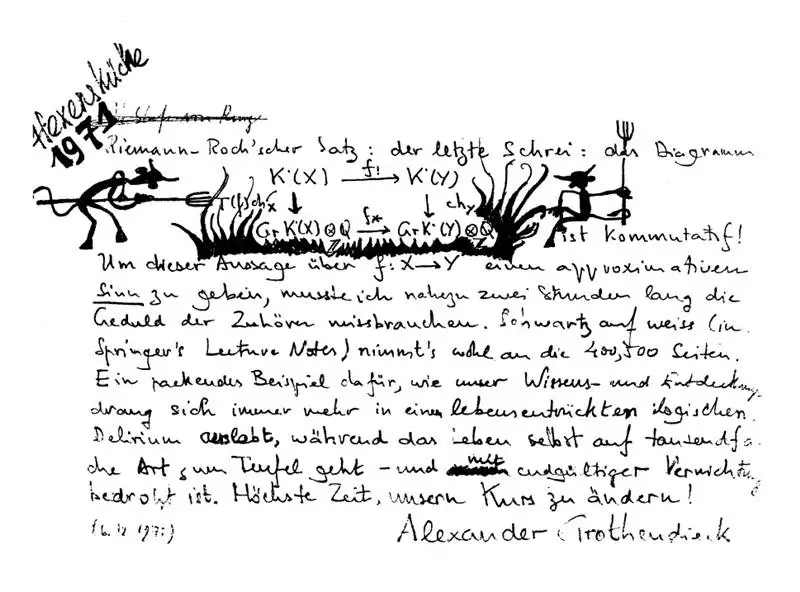 Hexenküche
1971
Riemann-Roch'scher Satz: der letzte Schrei: das Diagramm
K˙(X) f! → K˙(Y)
T(f)chₓ ↓ ↓ ch_y
Gr K˙(X)⊗Q f* → Gr K˙(Y)⊗Q
Z Z
ist kommutatif!
Um dieser Aussage über f: X → Y einen approximativen
Sinn zu geben, musste ich nahezu zwei Stunden lang die
Geduld der Zuhörer missbrauchen. Schwartz auf weiss (in
Springer's Lecture Notes) nimmt's wohl an die 400, 500 Seiten.
Ein packendes Beispiel dafür, wie unser Wissens- und Entdeckungs-
drang sich immer mehr in einem lebensentrückten logischen
Delirium auslebt, während das Leben selbst auf tausendfa-
che Art zum Teufel geht - und mit endgültiger Vernichtung
bedroht ist. Höchste Zeit, unsern Kurs zu ändern!
Alexander Grothendieck